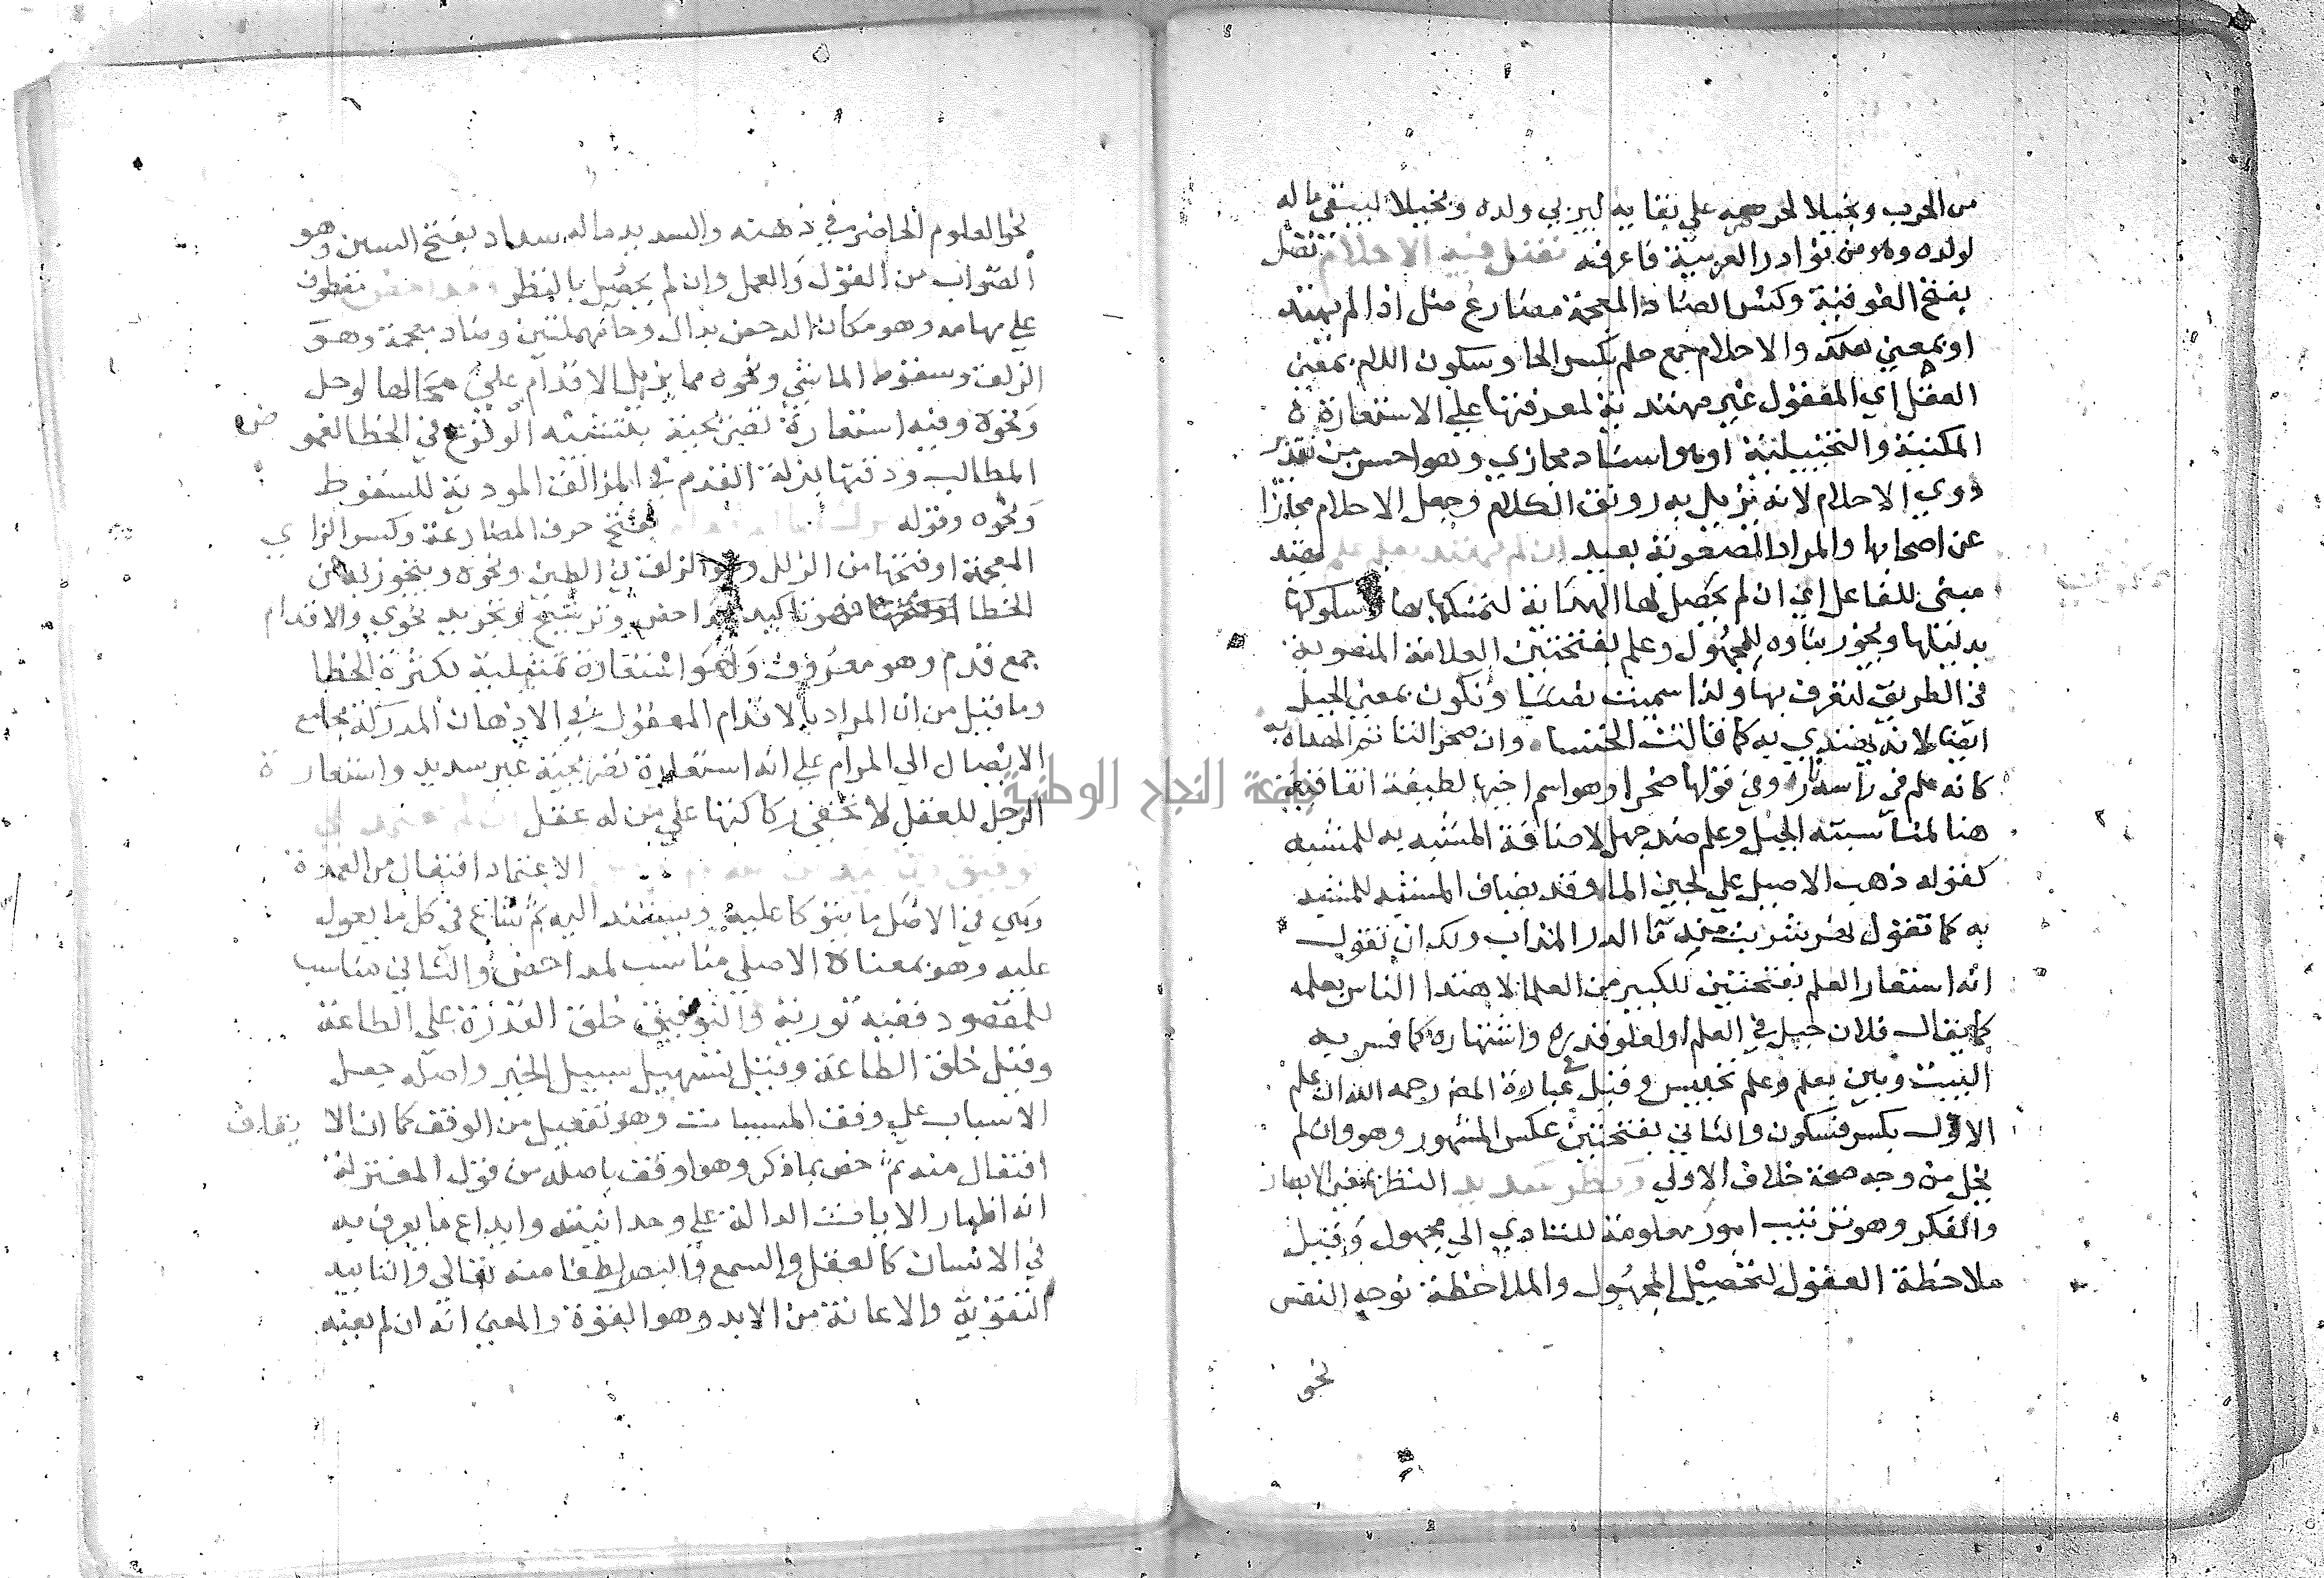 من الحرب وبخيلا لحرصه علي بقايه ليربي ولده وبخيلا ليبقي ماله
لولده وهو من نوادر العربية فاعرفه تضل فيه الاحلام تضل
بفتح الفوقية وكسر الضاد المعجمة مضارع ضل اذا لم يهتد
او بمعني هلك والاحلام جمع حلم بكسر الحا وسكون اللام بمعني
العقل اي العقول غير مهتدية لمعرفتها علي الاستعارة
المكنية والتخييلية او هو اسناد مجازي وهو احسن من تقدير
ذوي الاحلام لانه يزيل به رونق الكلام وجعل الاحلام مجازا
عن اصحابها والمراد المصغوية بعيد ان لم يهتد بعلم علم يهتد
مبني للفاعل اي ان لم يحصل لها الهداية لتمسكها بها وسلوكها
بدليلها ويجوز بناوه للمجهول وعلم بفتحتين العلامة المنصوبة
في الطريق لتعرف بها ولذا سميت نصبا وتكون بمعني الجبل
ايضا لانه يهتدي به كما قالت الخنساء وان صخرا لتاتم الهداة به
كانه علم في راسه نار وفي قولها صخرا وهو اسم اخيها لطيفة اتفاقية
هنا لمناسبته الجبل وعلم ضد جهل لاضافة المشبه به للمشبه
كقوله ذهب الاصيل علي لجين الما وقد يضاف المشبه للمشبه
به كما تقول ثغر شربت منه ما الدر المذاب ولك ان تقول
انه استعار العلم بفتحتين للكبير من العلما لاهتدا الناس بعلمه
كما يقال فلان جبل في العلم او لعلو قدره واشتهاره كما فسر به
البيت وبين بعلم وعلم تجنيس وقيل في عبارة المص رحمه الله ان علم
الاول بكسر فسكون والثاني بفتحتين عكس المشهور وهو وان لم
يخل من وجه صحة خلاف الاولي ونظر سديد النظر بمعني الابصار
والفكر وهو ترتيب امور معلومة للتادي الي مجهول وقيل
ملاحظة العقول لتحصيل المجهول والملاحظة توجه النفس
نحو
نحو العلوم الحاضر في ذهنه والسديد ماله سداد بفتح السين وهو
الصواب من القول والعمل وان لم يحصل بالنظر
علي مهامه وهو مكان الدحض بدال وحا مهملتين وضاد معجمة وهو
الزلق وسقوط الماشي ونحوه مما يزيل الاقدام علي محالها لوحل
ونحوه وفيه استعارة تصريحية بتشبيه الوقوع في الخطا لغمو ض
المطالب ودقتها بزلة القدم في المزالق المودية للسقوط
ونحوه وقوله بفتح حرف المضارعة وكسر الزاي
المعجمة او فتحها من الزلل وهو الزلق في الطين ونحوه ويتجوز به عن
الخطا فهو تاكيد لمداحض وترشيح وتجريد نحوي والاقدام
جمع قدم وهو معروف وهو استعارة تمثيلية لكثرة الخطا
وما قيل من ان المراد بالاقدام العقول في الاذهان المدركة بجامع
الايصال الي المرام علي انه استعارة تصريحية غير سديد واستعارة
الرجل للعقل لا تخفي ركاكتها علي من له عقل ان لم
توفيق الاعتماد افتعال من العمدة
وهي في الاصل ما يتوكا عليه ويستند اليه ثم شاع في كل ما يعول
عليه وهو بمعناه الاصلي مناسب لمداحض والثاني مناسب
للمقصود ففيه تورية والتوفيق خلق القدرة علي الطاعة
وقيل خلق الطاعة وقيل تسهيل سبيل الخير واصله جعل
الاسباب علي وفق المسببات وهو تفعيل من الوفق كما ان الا تفاق
افتعال منه ثم خص بما ذكر وهو اوفق باصله من قول المعتزلة
انه اظهار الايات الدالة علي وحدانيته وابداع ما يعرف به
في الانسان كالعقل والسمع والبصر لطفا منه تعالي والتاييد
التقوية والاعانة من الايد وهو القوة والمعني انه ان لم يعنه
جامعة النجاح الوطنية